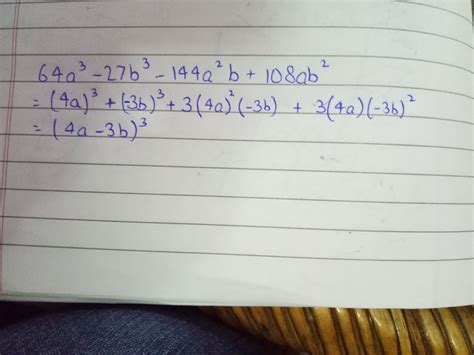 64a³ - 27b³ - 144a²b + 108ab²
= (4a)³ + (-3b)³ + 3(4a)²(-3b) + 3(4a)(-3b)²
= (4a - 3b)³